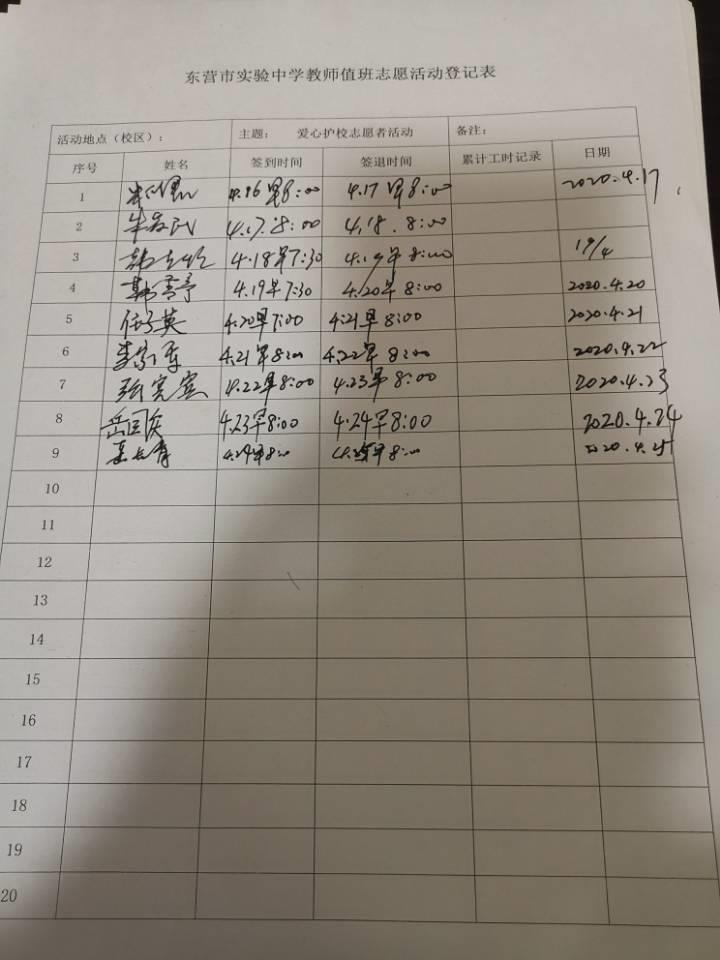 东营市实验中学教师值班志愿活动登记表
活动地点（校区）： 主题： 爱心护校志愿者活动 备注：
序号 姓名 签到时间 签退时间 累计工时记录 日期
1 4.16早8:00 4.17早8:00 2020.4.17
2 4.17.8:00 4.18.8:00
3 4.18早7:30 4.19早8:00 19/4
4 4.19早7:30 4.20早8:00 2020.4.20
5 4.20早7:00 4.21早8:00 2020.4.21
6 4.21早8:00 4.22早8:00 2020.4.22
7 4.22早8:00 4.23早8:00 2020.4.23
8 4.23早8:00 4.24早8:00 2020.4.24
9 4.24早8:00 早8:00 2020.4.25
10
11
12
13
14
15
16
17
18
19
20